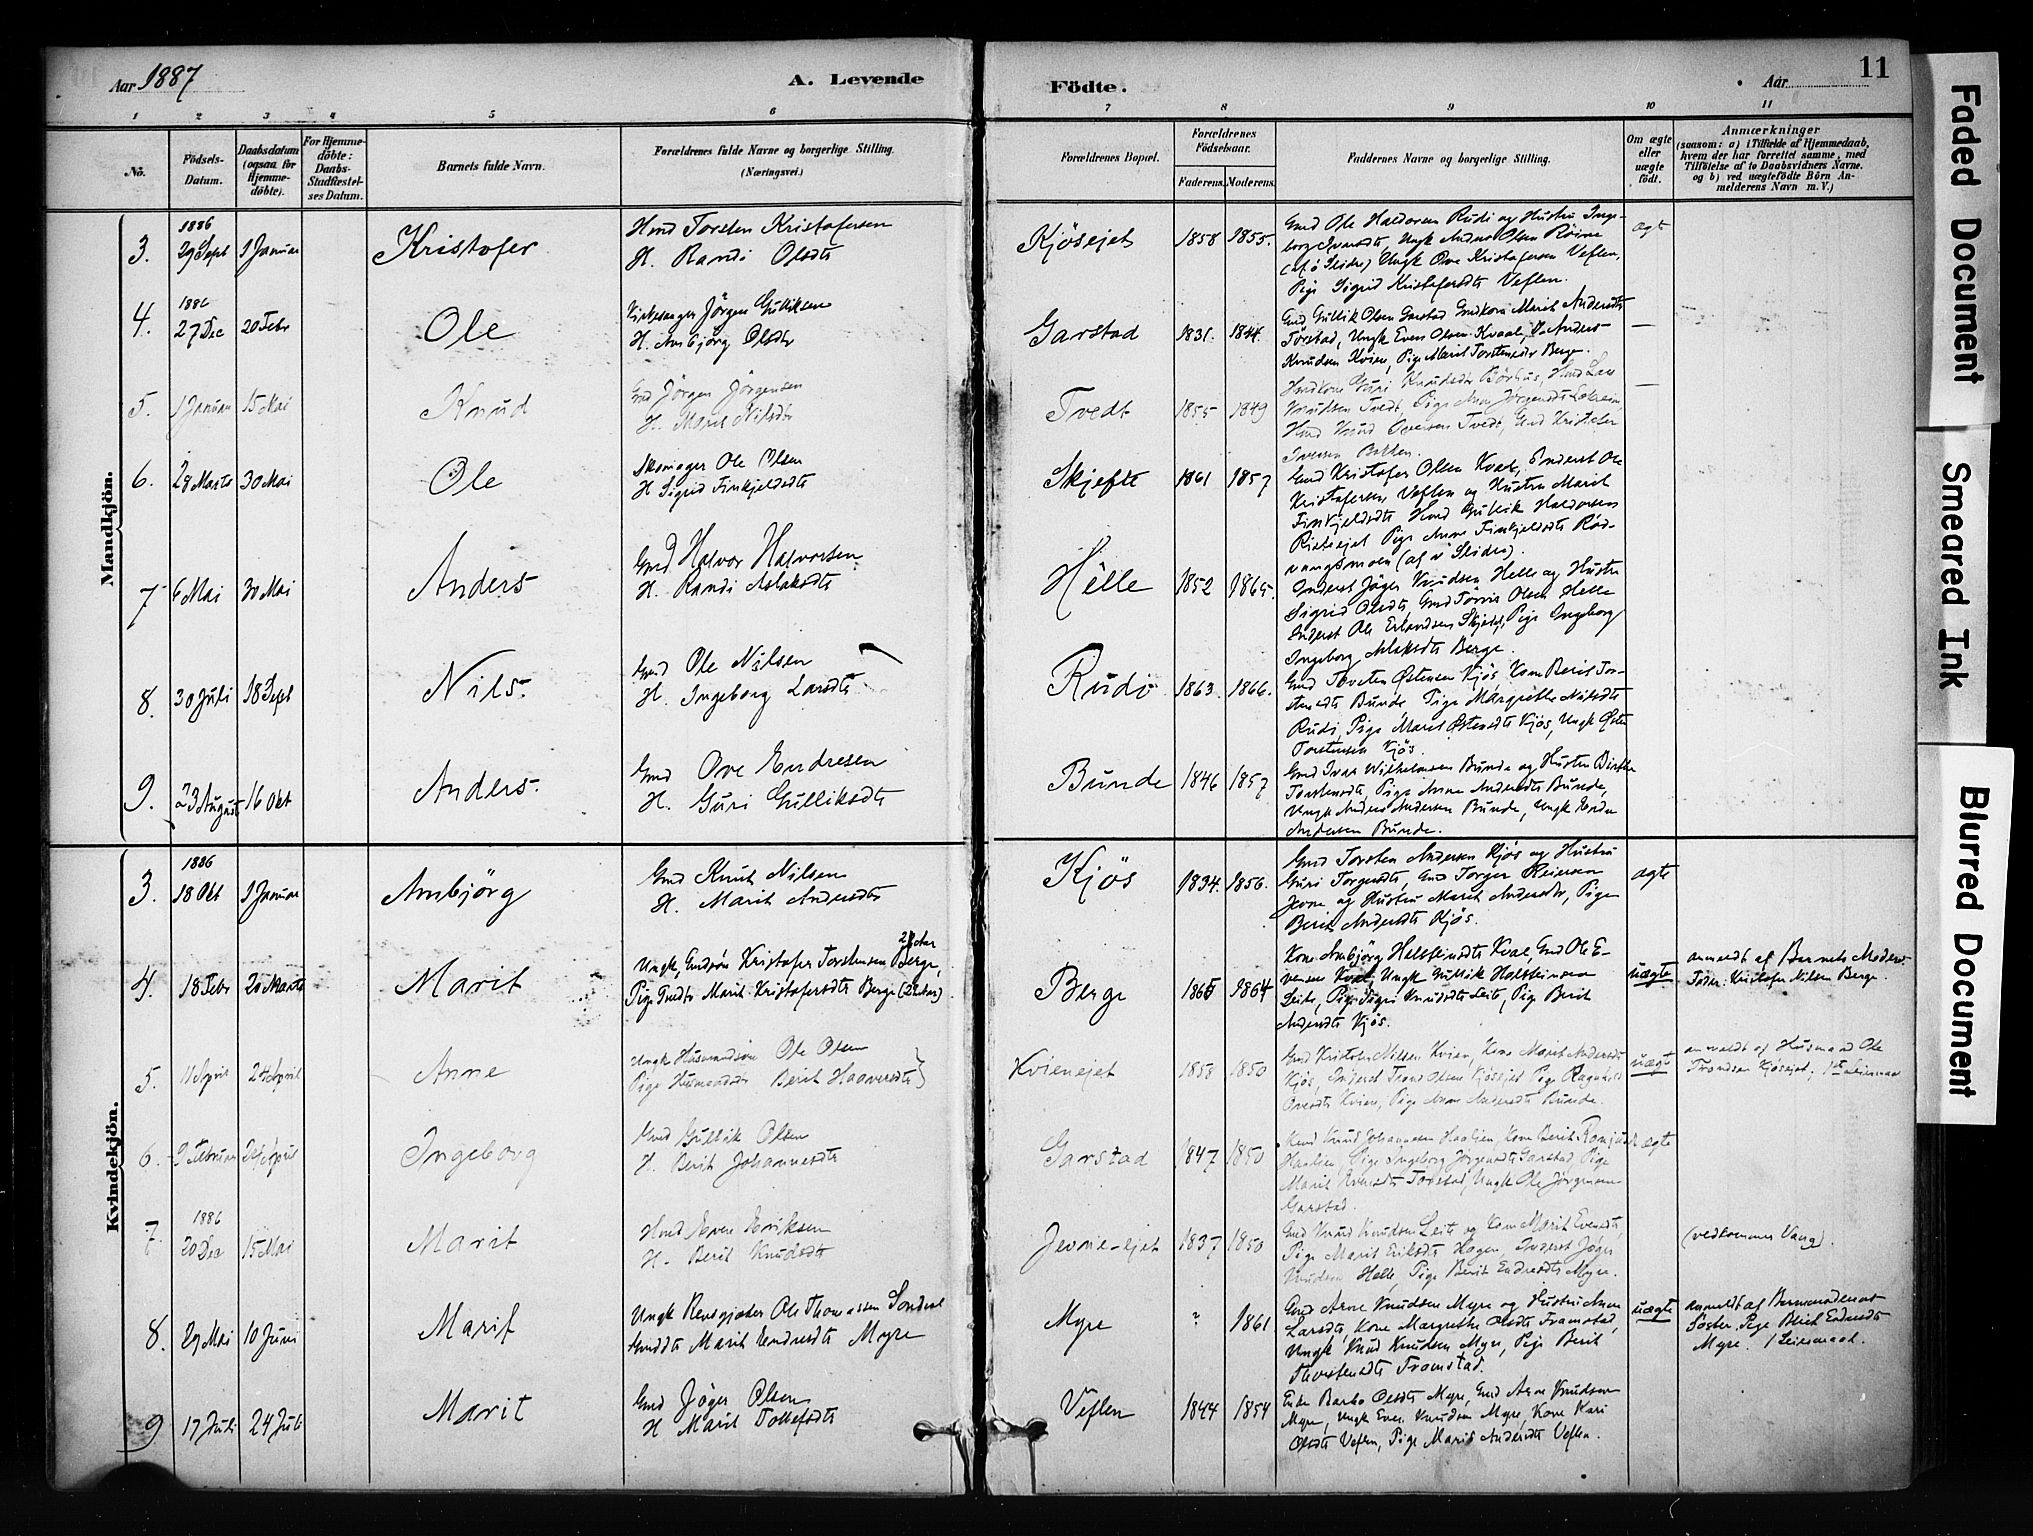 Aar 1887
A. Levende
Födte.
Aar
11
1 2 3 4 5 6 7 8 9 10 11
No.
Födsels-Datum.
Daabsdatum (ogsaa for Hjemme-döbte).
For Hjemme-döbte: Daabs-Stadfæstel-ses Datum.
Barnets fulde Navn.
Forældrenes fulde Navne og borgerlige Stilling. (Næringsvei.)
Forældrenes Bopæl.
Forældrenes Födselsaar.
Faderens. Moderens.
Faddernes Navne og borgerlige Stilling.
Om ægte eller uægte födt.
Anmærkninger
(saasom: a) i Tilfælde af Hjemmedaab, hvem der har forrettet samme, med Tilföielse af to Daabsvidners Navne. og b) ved uægtefödte Börn An-melderens Navn m. V.)
Mandkjön.
3. 1886 29 Sept 1 Januar Kristofer
Torsten Kristofersen
H. Randi Olsdt
Kjösejet 1858 1855.
Gmd Ole Haldorsen Rudi og Hustru Inge-
Ungk Ove Kristofersen Veflen,
Pige Sigrid Kristofersdt Veflen.
ægt
4. 1886 27 Dec 20 Febr Ole
Kirkesanger Jörgen Gulliksen
H. Ambjörg Olsdt
Garstad 1831. 1844.
Gmd Gullik Olsen Garstad Gmdkone Marit Andersdt
Torstad, Ungk Even Olsen Kvaale, Anders
Knudsen Kviene, Pige Marit Torstensdt Berge.
—
5. 1 Januar 15 Mai Knud
Gmd Jörgen Jörgensen
H. Marit Nilsdt
Tvedt 1855 1849
Tvedt, Pige
Hmd Knud Tvedt, Gmd Kristofer
Iversen Bakken.
—
6. 28 Marts 30 Mai Ole
Skomager Ole Olsen
H Sigrid Finkjeldsdt
Skjefte 1861 1857
Gmd Kristofer Olsen Kval, Inderst Ole
Kristofersen Veflen og Hustru Marit
Finkjeldsdt Hmd Gullik Haldorsen
Pige Anne Finkjeldsdt Röd-
vangsmoen (af ö Slidre).
7 6 Mai 30 Mai Anders
Gmd Halvor Halvorsen
H. Randi Aslaksdt
Helle 1852 1865.
Inderst Jöger Knudsen Helle og Hustru
Sigrid Olsdt, Gmd Olsen Helle
Inderst Ole Erlandsen Pige Ingeborg
Ingeborg Aslaksdt Berge.
8. 30 Juli 18 Sept Nils
Gmd Ole Nilsen
H. Ingeborg Larsdt
Rudi 1863. 1866.
Gmd Torsten Östensen Kjös Kone Berit Tor-
stensdt Bunde Pige Margrethe Nilsdt
Rudi, Pige Marit Östensdt Kjös, Ungk Östen
Torstensen Kjös.
9. 23 August 16 Okt Anders
Gmd Ove Endresen
H. Guri Gulliksdt
Bunde 1846 1857
Gmd Ivar Wilhelmsen Bunde og Hustru
Torstensdt, Pige Anne Andersdt Bunde,
Ungk Anders Andersen Bunde, Ungk Endre
Andersen Bunde.
Kvindekjön.
3. 1886 18 Okt 1 Januar Ambjörg
Gmd Knut Nilsen
H. Marit Andersdt
Kjös 1834. 1856.
Gmd Torsten Andersen Kjös og Hustru
Guri Torgersdt, Gmd Torger Reiersen
Jevne og Hustru Marit Andersdt, Pige
Berit Andersdt Kjös.
ægte
4. 18 Febr 20 Marts Marit
Ungk, Gmdsön Kristofer Torstensen Berge,
Pige Gmdt Marit Kristofersdt Berge
Berge 1865 1864
Kone Ambjörg Helsteinsdt Kval, Gmd Ole E-
vensen Kval, Ungk Gullik Halsteinsen
Leite, Pige Sigri Knudsdt Leite, Pige Berit
Andersdt Kjös.
uægte
anmeldt af Barnets Moders
Fader: Kristofer Nilsen Berge
5. 11 April 24 April Anne
Ungk Husmandssön Ole Olsen
Pige Husmandsdt Berit Haavarsdt
Kvienejet 1858 1850
Gmd Kristofer Nilsen Kvien, Kone Marit Andersdt
Kjös, Inderst Trond Olsen Kjösejet Pige Ragnhild
Ovesdt Kvien, Pige Anne Andersdt Bunde.
uægte
anmeldt af Husmand Ole
Trondsen Kjösejet; 1ste Leiermaal
6. 9 Februar 24 April Ingeborg
Gmd Gullik Olsen
H. Berit Johannesdt
Garstad 1847 1850
Knud Johannesen Haalien, Kone Berit
Haalien, Pige Ingeborg Jörgensdt Garstad, Pige
Marit Torstad, Ungk Ole Jörgensen
Garstad.
ægte
7. 1886 20 Dec 15 Mai Marit
Hmd Even Eriksen
H. Berit Knudsdt
Jevne-ejet 1837 1850
Gmd Knud Knudsen Leite og Kone Marit Evensdt,
Pige Marit Eriksdt Hagen, Inderst Jöger
Knudsen Helle, Pige Berit Endresdt Myre.
(vedkommer Vang).
8. 29 Mai 10 Juni Marit
Ungk Ole Thomassen
Marit Endresdt Myre
Myre ? 1861
Gmd Arne Knudsen Myre og Hustru Anne
Larsdt, Kone Margrethe Olsdt Framstad,
Ungk Knud Knudsen Myre, Pige Berit
Thorstensdt Framstad.
uægte
anmeldt af Barnemoderens
Söster, Pige Berit Endresdt
Myre. 1 Leiermaal.
9 17 Juli 24 Juli Marit
Gmd Jöger Olsen
H Marit Tollefsdt
Veflen 1844 1854
Enke Barbo Olsdt Myre, Gmd Arne Knudsen
Myre, Ungk Even Knudsen Myre, Kone Kari
Olsdt Veflen, Pige Marit Andersdt Veflen.
Faded Document
Smeared Ink
Blurred Document